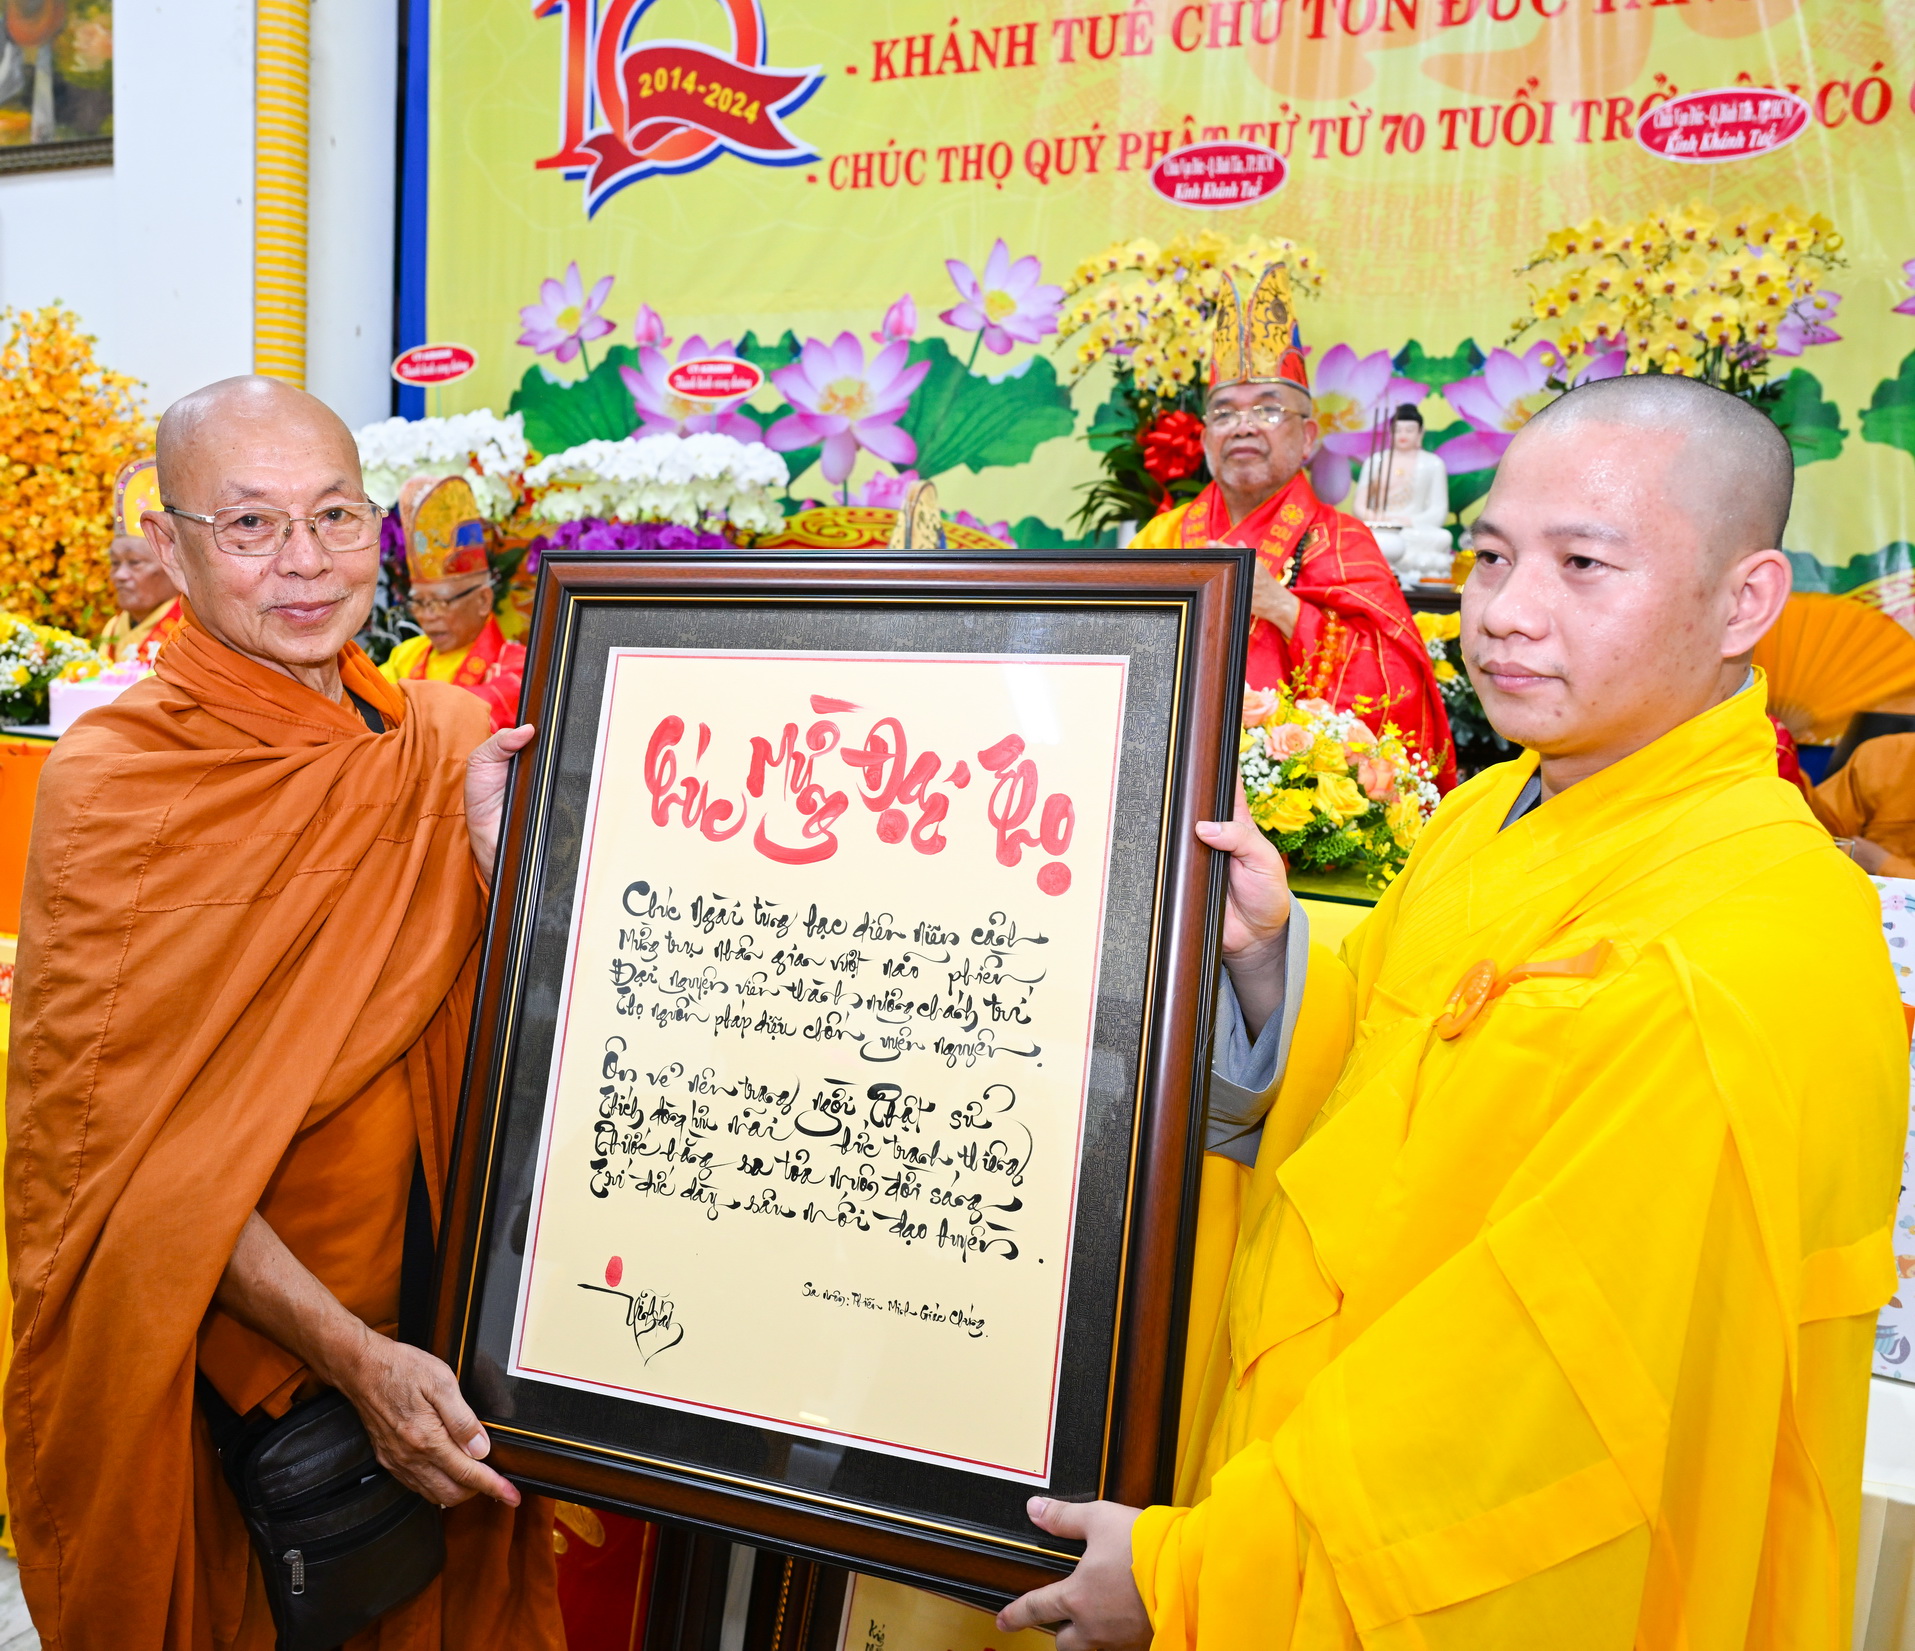 10
2014-2024
- KHÁNH TUẾ CHƯ TÔN ĐỨC TĂNG
- CHÚC THỌ QUÝ PHẬT TỬ TỪ 70 TUỔI TRỞ LÊN CÓ
Kính Khánh Tuế
Kính Khánh Tuế
Chúc Mừng Đại Thọ
Chúc ngài tùng hạc diên niên cảnh
Mừng trụ nhân gian vượt não phiền
Đại nguyện viên thành nương chánh trí
Thọ nguồn pháp diệu chốn uyên nguyên.
Ôn về nên trang ngôi Thật sử
Thích đồng hữu mãi bức tranh thiêng
Phước hằng sa tỏa muôn đời sáng
Trí đức dày sâu mối đạo huyền.
Sa môn: Thiền Minh Giác Chúng.